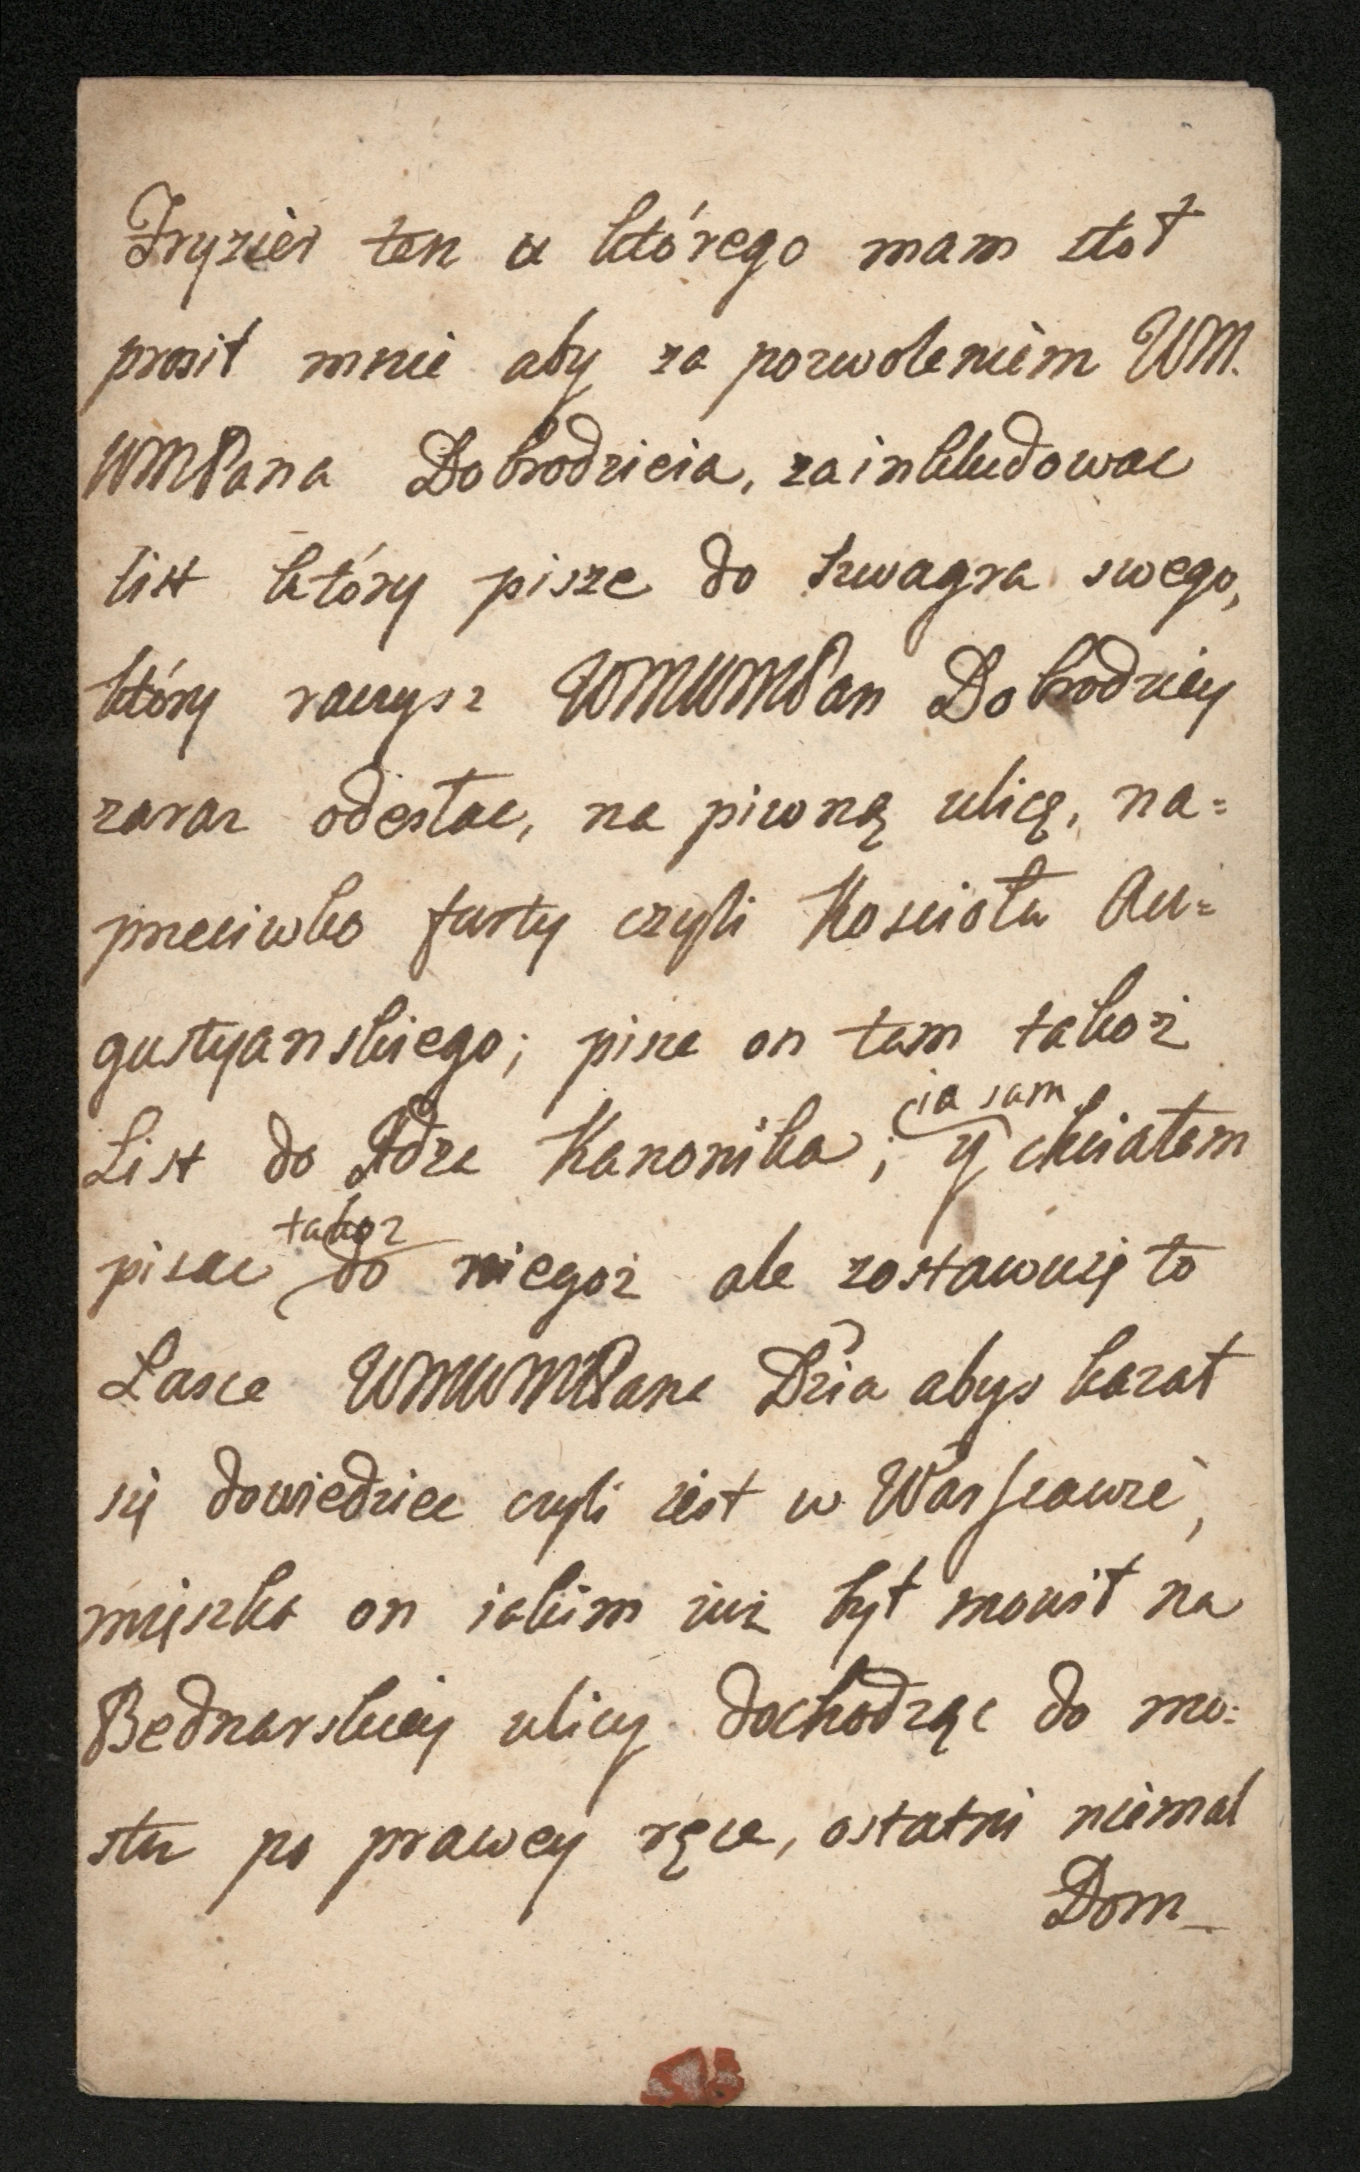 Fryzier ten u którego mam stoł
prosił mnie aby za pozwoleniem WM.
WMPana Dobrodzieia, zainkludowac
list który pisze do szwagra swego,
który raczysz WMWMPan Dobrodziey
zaraz odesłac, na piwną ulicę, na=
przeciwko furty czyli Koscioła Au=
gustyanskiego; pisze on tam takoż
List do Xdza Kanonika; y ia sam chciałem
pisac takoz do niegoż ale zostawuię to
Lasce WMWMPana Dzia abys kazał
się dowiedziec czyli iest w Warszawie,
mięszka on iakim iuż był mowił na
Bednarskiey ulicy dochodząc do mo=
stu po prawey ręce, ostatni niemal
Dom